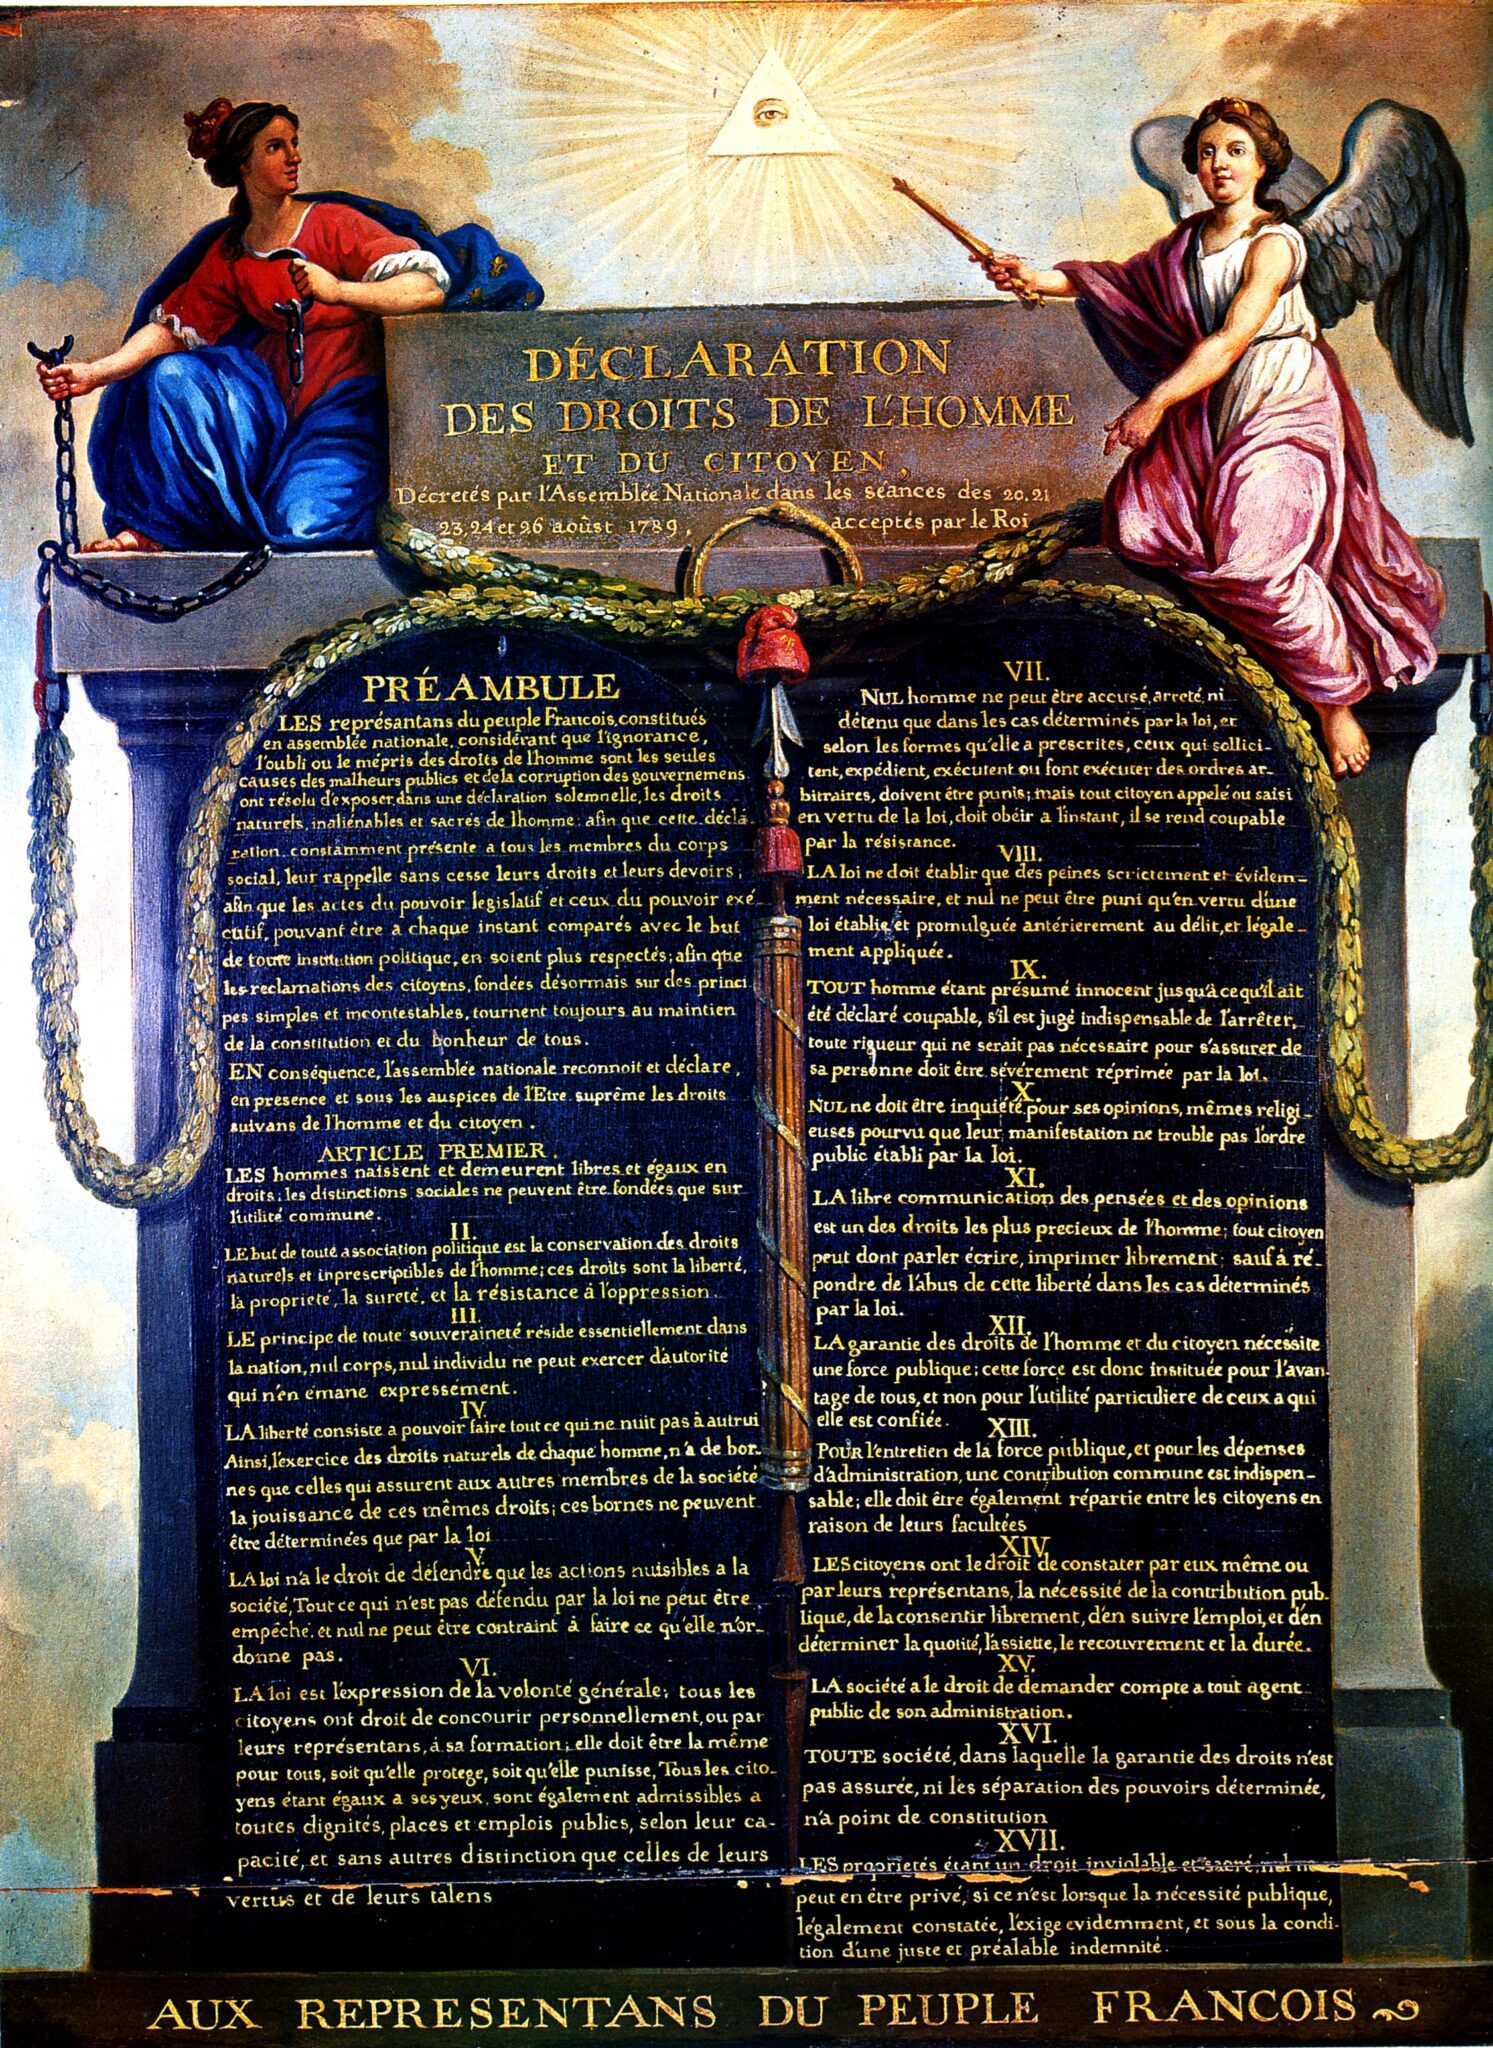 DÉCLARATION
DES DROITS DE L'HOMME
ET DU CITOYEN,
Décretés par l'Assemblée Nationale dans les séances des 20, 21
23, 24 et 26 aoûst 1789, acceptés par le Roi
PRÉAMBULE
LES représantans du peuple Francois, constitués
en assemblée nationale, considérant que l'ignorance,
l'oubli ou le mépris des droits de l'homme sont les seules
causes des malheurs publics et de la corruption des gouvernemens
ont résolu d'exposer, dans une déclaration solemnelle, les droits
naturels, inaliénables et sacrés de l'homme: afin que cette décla
ration, constamment présente a tous les membres du corps
social, leur rappelle sans cesse leurs droits et leurs devoirs;
afin que les actes du pouvoir legislatif et ceux du pouvoir exé
cutif, pouvant être a chaque instant comparés avec le but
de toute institution politique, en soient plus respectés; afin que
les reclamations des citoyens, fondées désormais sur des princi
pes simples et incontestables, tournent toujours au maintien
de la constitution et du bonheur de tous.
EN conséquence, l'assemblée nationale reconnoit et déclare,
en presence et sous les auspices de l'Etre suprême les droits
suivans de l'homme et du citoyen.
ARTICLE PREMIER.
LES hommes naissent et demeurent libres et égaux en
droits; les distinctions sociales ne peuvent être fondées que sur
l'utilité commune.
II.
LE but de toute association politique est la conservation des droits
naturels et inprescriptibles de l'homme; ces droits sont la liberté,
la propriété, la sureté, et la résistance à l'oppression.
III.
LE principe de toute souveraineté réside essentiellement dans
la nation, nul corps, nul individu ne peut exercer d'autorité
qui n'en émane expressément.
IV.
LA liberté consiste a pouvoir faire tout ce qui ne nuit pas à autrui
Ainsi, l'exercice des droits naturels de chaque homme, n'a de bor-
nes que celles qui assurent aux autres membres de la société
la jouissance de ces mêmes droits; ces bornes ne peuvent
être déterminées que par la loi
V.
LA loi n'a le droit de défendre que les actions nuisibles a la
société, Tout ce qui n'est pas défendu par la loi ne peut être
empêché, et nul ne peut être contraint à faire ce qu'elle n'or-
donne pas.
VI.
LA loi est l'expression de la volonté générale; tous les
citoyens ont droit de concourir personnellement, ou par
leurs représentans, à sa formation; elle doit être la même
pour tous, soit qu'elle protege, soit qu'elle punisse, Tous les cito-
yens étant égaux a ses yeux, sont également admissibles a
toutes dignités, places et emplois publics, selon leur ca-
pacité, et sans autres distinction que celles de leurs
vertus et de leurs talens
VII.
NUL homme ne peut être accusé, arreté, ni
détenu que dans les cas déterminés par la loi, et
selon les formes qu'elle a prescrites, ceux qui sollici-
tent, expédient, exécutent ou font exécuter des ordres ar-
bitraires, doivent être punis; mais tout citoyen appelé ou saisi
en vertu de la loi, doit obéir a l'instant, il se rend coupable
par la résistance.
VIII.
LA loi ne doit établir que des peines scrictement et évidem-
ment nécessaire, et nul ne peut être puni qu'en vertu d'une
loi établie et promulguée antérierement au délit, et légale-
ment appliquée.
IX.
TOUT homme étant présumé innocent jusqu'a ce qu'il ait
été déclaré coupable, s'il est jugé indispensable de l'arrêter,
toute rigueur qui ne serait pas nécessaire pour s'assurer de
sa personne doit être sévérement réprimée par la loi.
X.
NUL ne doit être inquiété pour ses opinions, mêmes religi-
euses pourvu que leur manifestation ne trouble pas l'ordre
public établi par la loi.
XI.
LA libre communication des pensées et des opinions
est un des droits les plus precieux de l'homme; tout citoyen
peut dont parler écrire, imprimer librement; sauf à ré-
pondre de l'abus de cette liberté dans les cas déterminés
par la loi.
XII.
LA garantie des droits de l'homme et du citoyen nécessite
une force publique; cette force est donc instituée pour l'avan-
tage de tous, et non pour l'utilité particuliere de ceux a qui
elle est confiée.
XIII.
POUR l'entretien de la force publique, et pour les dépenses
d'administration, une contribution commune est indispen-
sable; elle doit être également répartie entre les citoyens en
raison de leurs facultées
XIV.
LES citoyens ont le droit de constater par eux même ou
par leurs représentans, la nécessité de la contribution pub-
lique, de la consentir librement, d'en suivre l'emploi, et d'en
déterminer la quotité, l'assiette, le recouvrement et la durée.
XV.
LA société a le droit de demander compte a tout agent
public de son administration.
XVI.
TOUTE société, dans laquelle la garantie des droits n'est
pas assurée, ni les séparation des pouvoirs déterminée,
n'a point de constitution
XVII.
LES proprietés étant un droit inviolable et sacré, nul ne
peut en être privé, si ce n'est lorsque la nécessité publique,
légalement constatée, l'exige evidemment, et sous la condi-
tion d'une juste et préalable indemnité.
AUX REPRESENTANS DU PEUPLE FRANCOIS